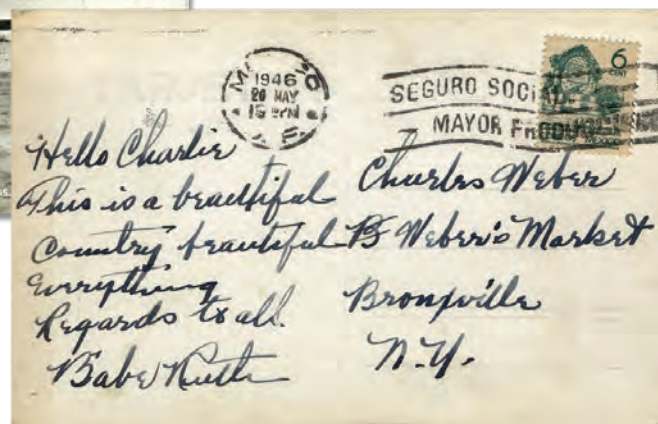 1946
20 MAY
SEGURO SOCIAL
MAYOR
6
CENT
MEXICO
Hello Charlie
This is a beautiful
Country beautiful
Everything
Regards to all.
Babe Ruth
Charles Weber
Weber's Market
Bronxville
N.Y.